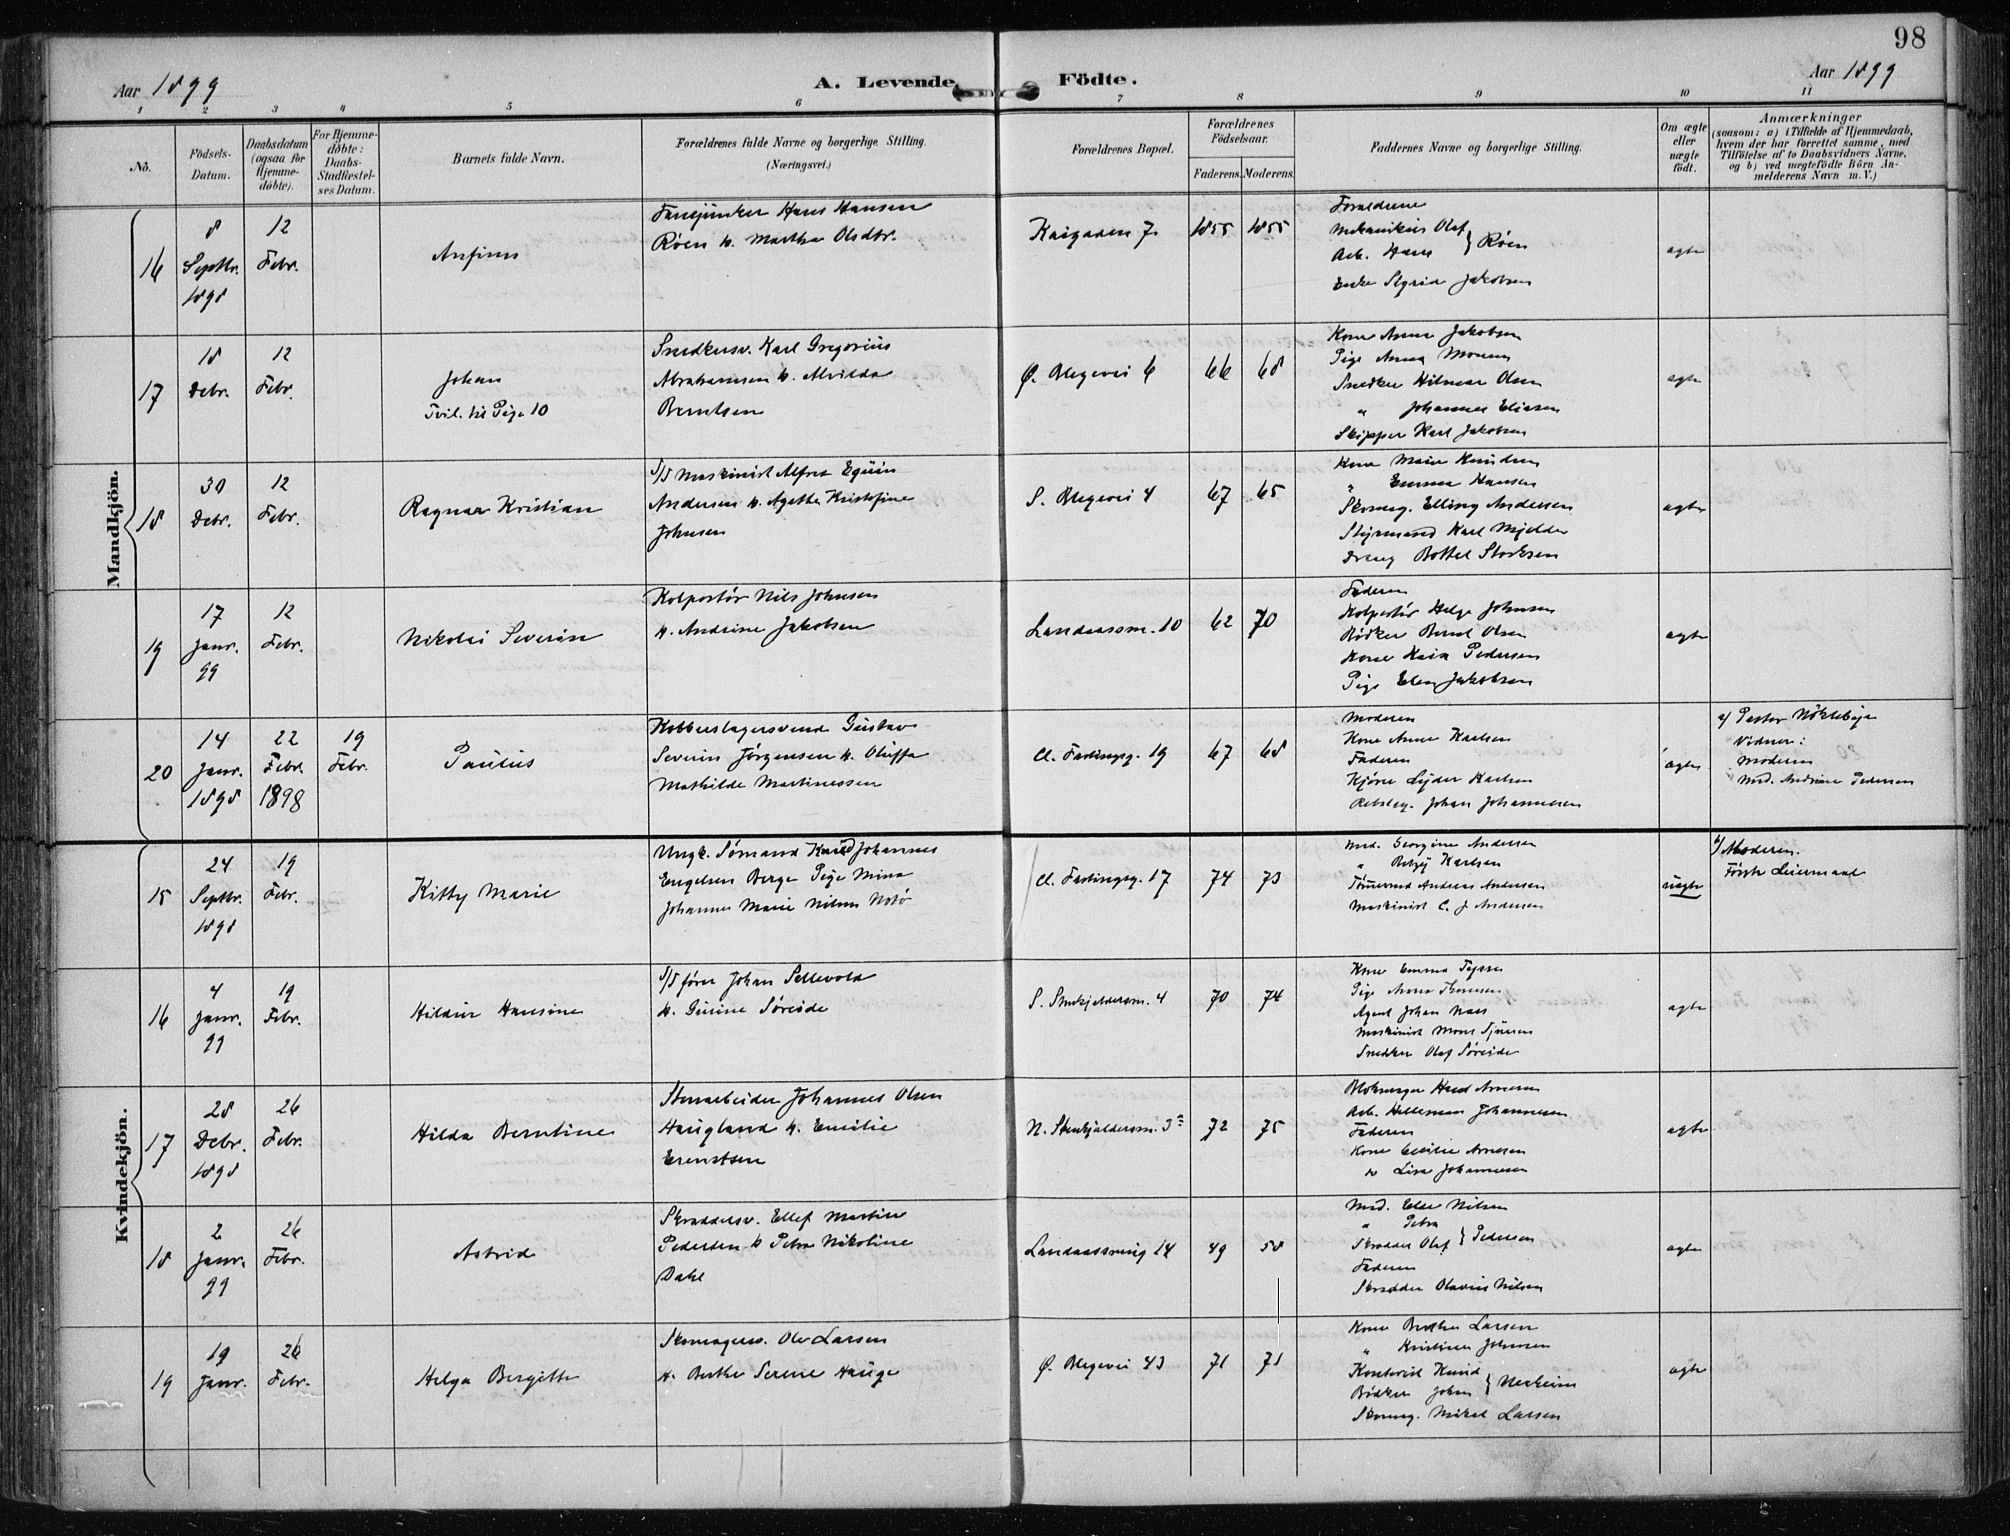 98
Aar 1899
A. Levende Födte.
Aar 1899
1 2 3 4 5 6 7 8 9 10 11
No.
Födsels-Datum.
Daabsdatum (ogsaa for Hjemmedöbte).
For Hjemmedöbte: Daabs-Stadfæstelses Datum.
Barnets fulde Navn.
Forældrenes fulde Navne og borgerlige Stilling.
(Næringsvei.)
Forældrenes Bopæl.
Forældrenes Födselsaar.
Faderens. Moderens.
Faddernes Navne og borgerlige Stilling.
Om ægte eller uægte födt.
Anmærkninger
(saasom: a) i Tilfælde af Hjemmedaab, hvem der har forrettet samme, med Tilföielse af to Daabsvidners Navne, og b) ved uægtefödte Börn Anmelderens Navn m. V.)
Mandkjön.
16
8 Septbr. 1898
12 Febr.
Anfinn
Fanejunker Hans Hansen
Røen h. Martha Olsdtr.
Kaigaden 7.
1855 1855
Forældrene
Mekanikus Olaf
Arb. Hans } Røen
Enke Sigrid Jakobsen
ægte
17
18 Debr.
12 Febr.
Johan
Tvil. til Pige 10
Snedkersv. Karl Gregorius
Abrahamsen h. Alvilda
Berntsen
Ø. Blegevei 6
66 68
Kone Anna Jakobsen
Pige Anna Monsen
Snedker Hilmar Olsen
" Johannes Eliasen
Skipper Karl Jakobsen
ægte
18
30 Debr.
12 Febr.
Ragnar Kristian
S/S Maskinist Alfred Equin
Andersen h. Agathe Kristofine
Johnsen
S. Blegevei 4
67 65
Kone Marie Knudsen
" Emma Hansen
Skomag. Elling Andersen
Styrmand Karl Mjelde
Dreng Bottel Storksen
ægte
19
17 Janr. 99
12 Febr.
Nikolai Severin
Kolportør Nils Johnsen
h. Andrine Jakobsen
Landaassm. 10
62 70
Faderen
Kolportør Helge Johnsen
Bødker Bernt Olsen
Kone Kaia Pedersen
Pige Elen Jakobsen
ægte
20
14 Janr. 1898
22 Febr. 1898
19 Febr.
Paulus
Kobberslagersvend Gustav
Severin Jørgensen h. Oluffa
Mathilde Martinussen
Cl. Fastingsg. 19
67 68
Moderen
Kone Anne Karlsen
Faderen
Kjøre Lyder Karlsen
Rebslag. Johan Johannesen
ægte
a/ Pastor Nöklebye
Vidner:
Moderen
Mad. Andrine Pedersen
Kvindekjön.
15
24 Septbr. 1898
19 Febr.
Kitty Marie
Ungk. Sømand Knud Johannes
Engelsen Berge Pige Mina
Johanne Marie Nilsen Notø
Cl. Fastingsg. 17
74 73
Mad. Georgine Andersen
" Betzy Karlsen
Tømmermd Andreas Andersen
Maskinist C. J Andersen
uægte
b/ Moderen.
Første Leiermaal
16
4 Janr. 99
19 Febr.
Hildur Hansine
S/S fører Johan Sellevold
h. Gurine Søreide
S. Stenkjeldersm. 4
70 74
Kone Emma
Pige Anna Thomsen
Agent Johan Naes
Maskinist Mons Sjursen
Snedker Olaf Søreide
ægte
17
28 Debr. 1898
26 Febr.
Hilda Berntine
Stenarbeider Johannes Olsen
Haugland h. Emilie
Erentsen
N. Stenkjeldersm. 3
72 75
Blokmager Knud Arnesen
Arb. Johannesen
Faderen
Kone Cecilie Arnesen
" Lisa Johannesen
ægte
18
2 Janr. 99
26 Febr.
Astrid
Skræddersv. Ellef Martine
Pedersen h. Petra Nikoline
Dahl
Landaassving 14
49 58
Mad. Elde Nilsen
" Petra
Skrædder Olaf } Pedersen
Faderen
Skrædder Olavus Nilsen
ægte
19
19 Janr.
26 Febr.
Helga Bergitte
Skomagersv. Ole Larsen
h. Berthe Serene Hauge
Ø. Blegevei 43
71 71
Kone Berthe Larsen
" Kristine Johnsen
Kontorist Knud
Bødker Johan } Neskeim
Skomag. Mikal Larsen
ægte